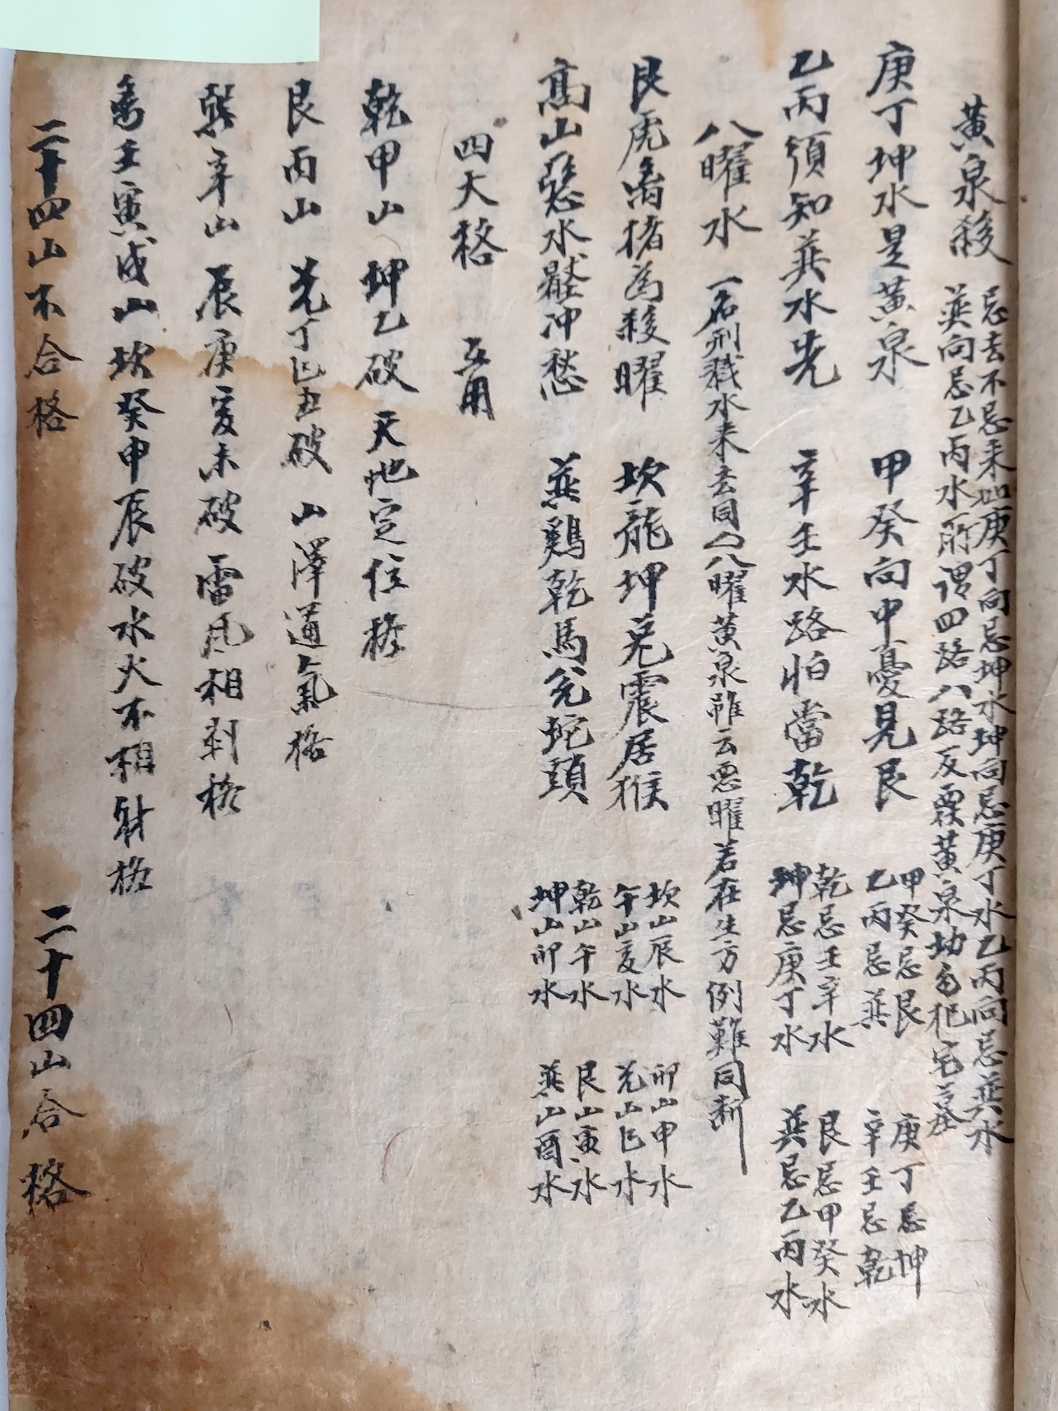 黃泉殺
忌去不忌來如庚丁向忌坤水坤向忌庚丁水乙丙向忌巽水
巽向忌乙丙水所謂四路八路反覆黃泉切勿犯宅墓
庚丁坤水是黃泉 甲癸向中憂見艮
甲癸忌艮 庚丁忌坤
乙丙忌巽 辛壬忌乾
乙丙須知巽水先 辛壬水路怕當乾
乾忌壬辛水 艮忌甲癸水
坤忌庚丁水 巽忌乙丙水
八曜水 一名刑戮水來去同 八曜黃泉雖云惡曜若在生方例難同斷
艮虎离猪為殺曜 坎龍坤兔震居猴
坎山辰水 卯山甲水
午山亥水 艮山寅水
高山 水 冲愁 巽鷄乾馬兌蛇頭
乾山午水 兌山巳水
坤山卯水 巽山酉水
四大格 互用
乾甲山 坤乙破 天地定位格
艮丙山 兌丁巳丑破 山澤通氣格
巽辛山 辰庚亥未破 雷風相剥格
离壬寅戌山 坎癸申辰破水火不相射格
二十四山不合格 二十四山合格